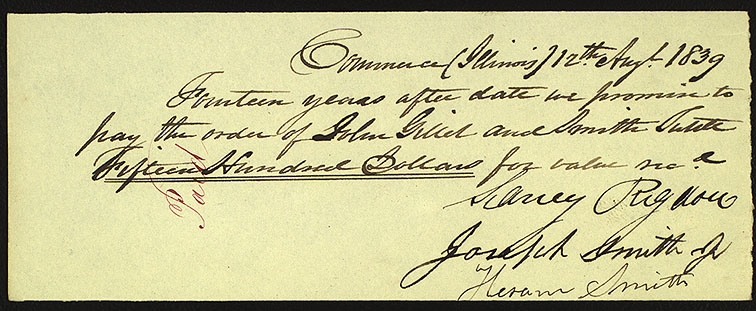 Commerce (Illinois) 12th Augt. 1839
Fourteen years after date we promise to
pay the order of John Gillet and Smith Tuttle
Fifteen Hundred Dollars for value recd
Paid
Sidney Rigdon
Joseph Smith Jr
Hiram Smith